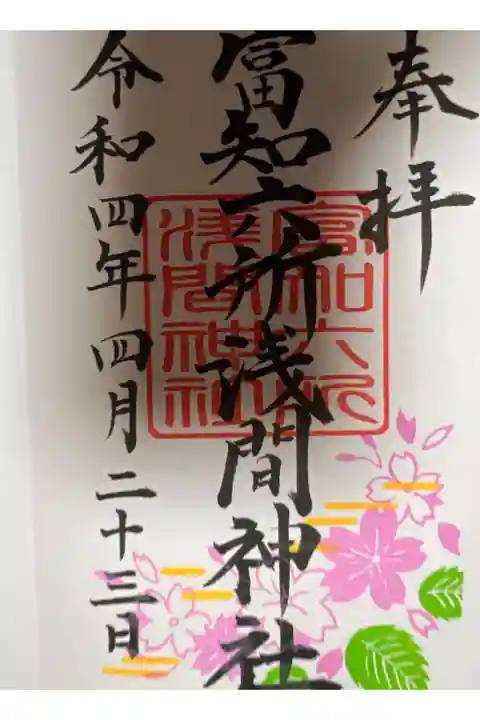 奉拝
富知六所浅間神社
令和四年四月二十三日
富知六所
浅間神社